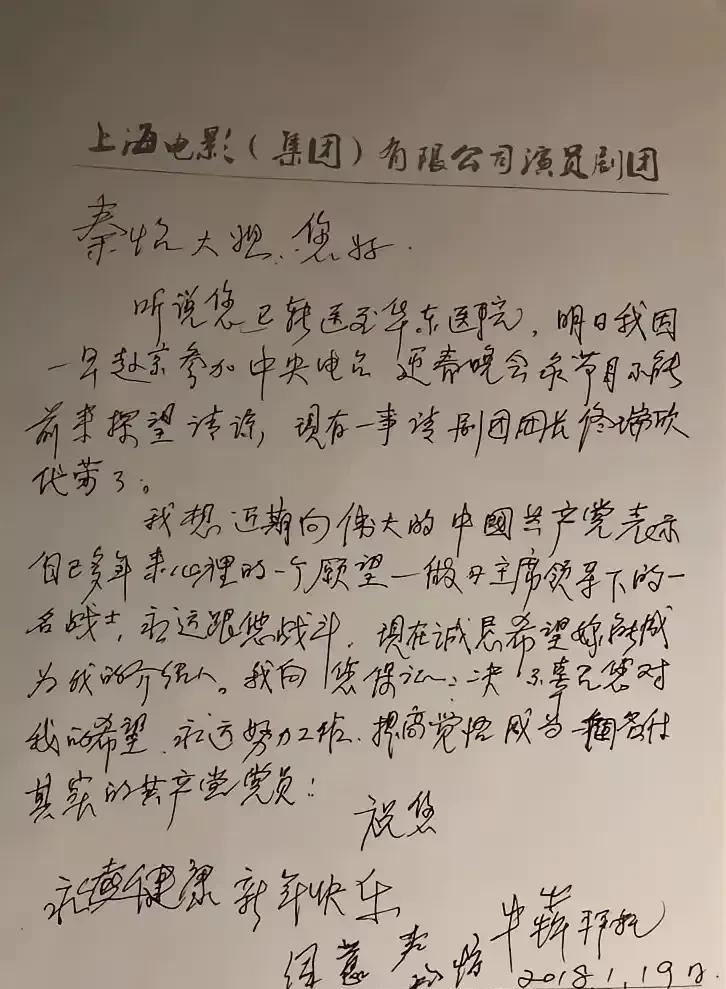 上海电影（集团）有限公司演员剧团
秦怡大姐：您好．
听说您已转送至华东医院，明日我因
一早赴京参加中央电台 迎春晚会录节目不能
前来探望请谅，现有一事请剧团团长佟瑞欣
代劳了。
我想近期向伟大的中國共产党表示
自己多年来心里的一个愿望—做毛主席领导下的一
名战士，永远跟您战斗，现在诚恳希望您能成
为我的介绍人。我向您保证：决不辜负您对
我的希望，永远努力工作、提高觉悟成为一個名付
其实的共产党党员！
祝您
永远健康 新年快乐
牛犇拜托
2018.1.19日.